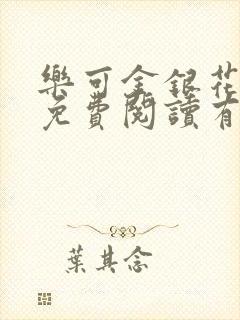 樂可金銀花
免費閱讀有
葉其念